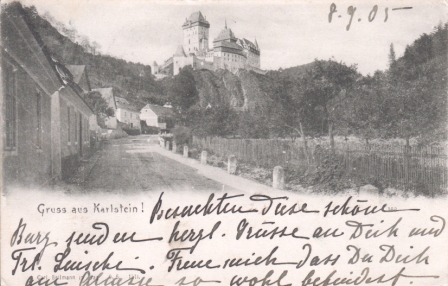 8.9.05
Gruss aus Karlstein!
Besuchten diese schöne
Burg, senden herzl. Grüsse an Dich und
Frl. Luischi. Freue mich dass Du Dich
so wohl befindest.